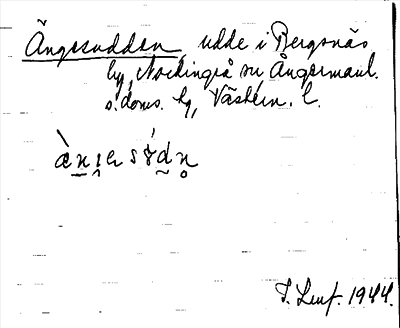 Ängesudden, udde i Bergsnäs
by, Nordingrå sn, Ångermanl.
s. doms. hg, Västern. l.
J. Leuf. 1944.